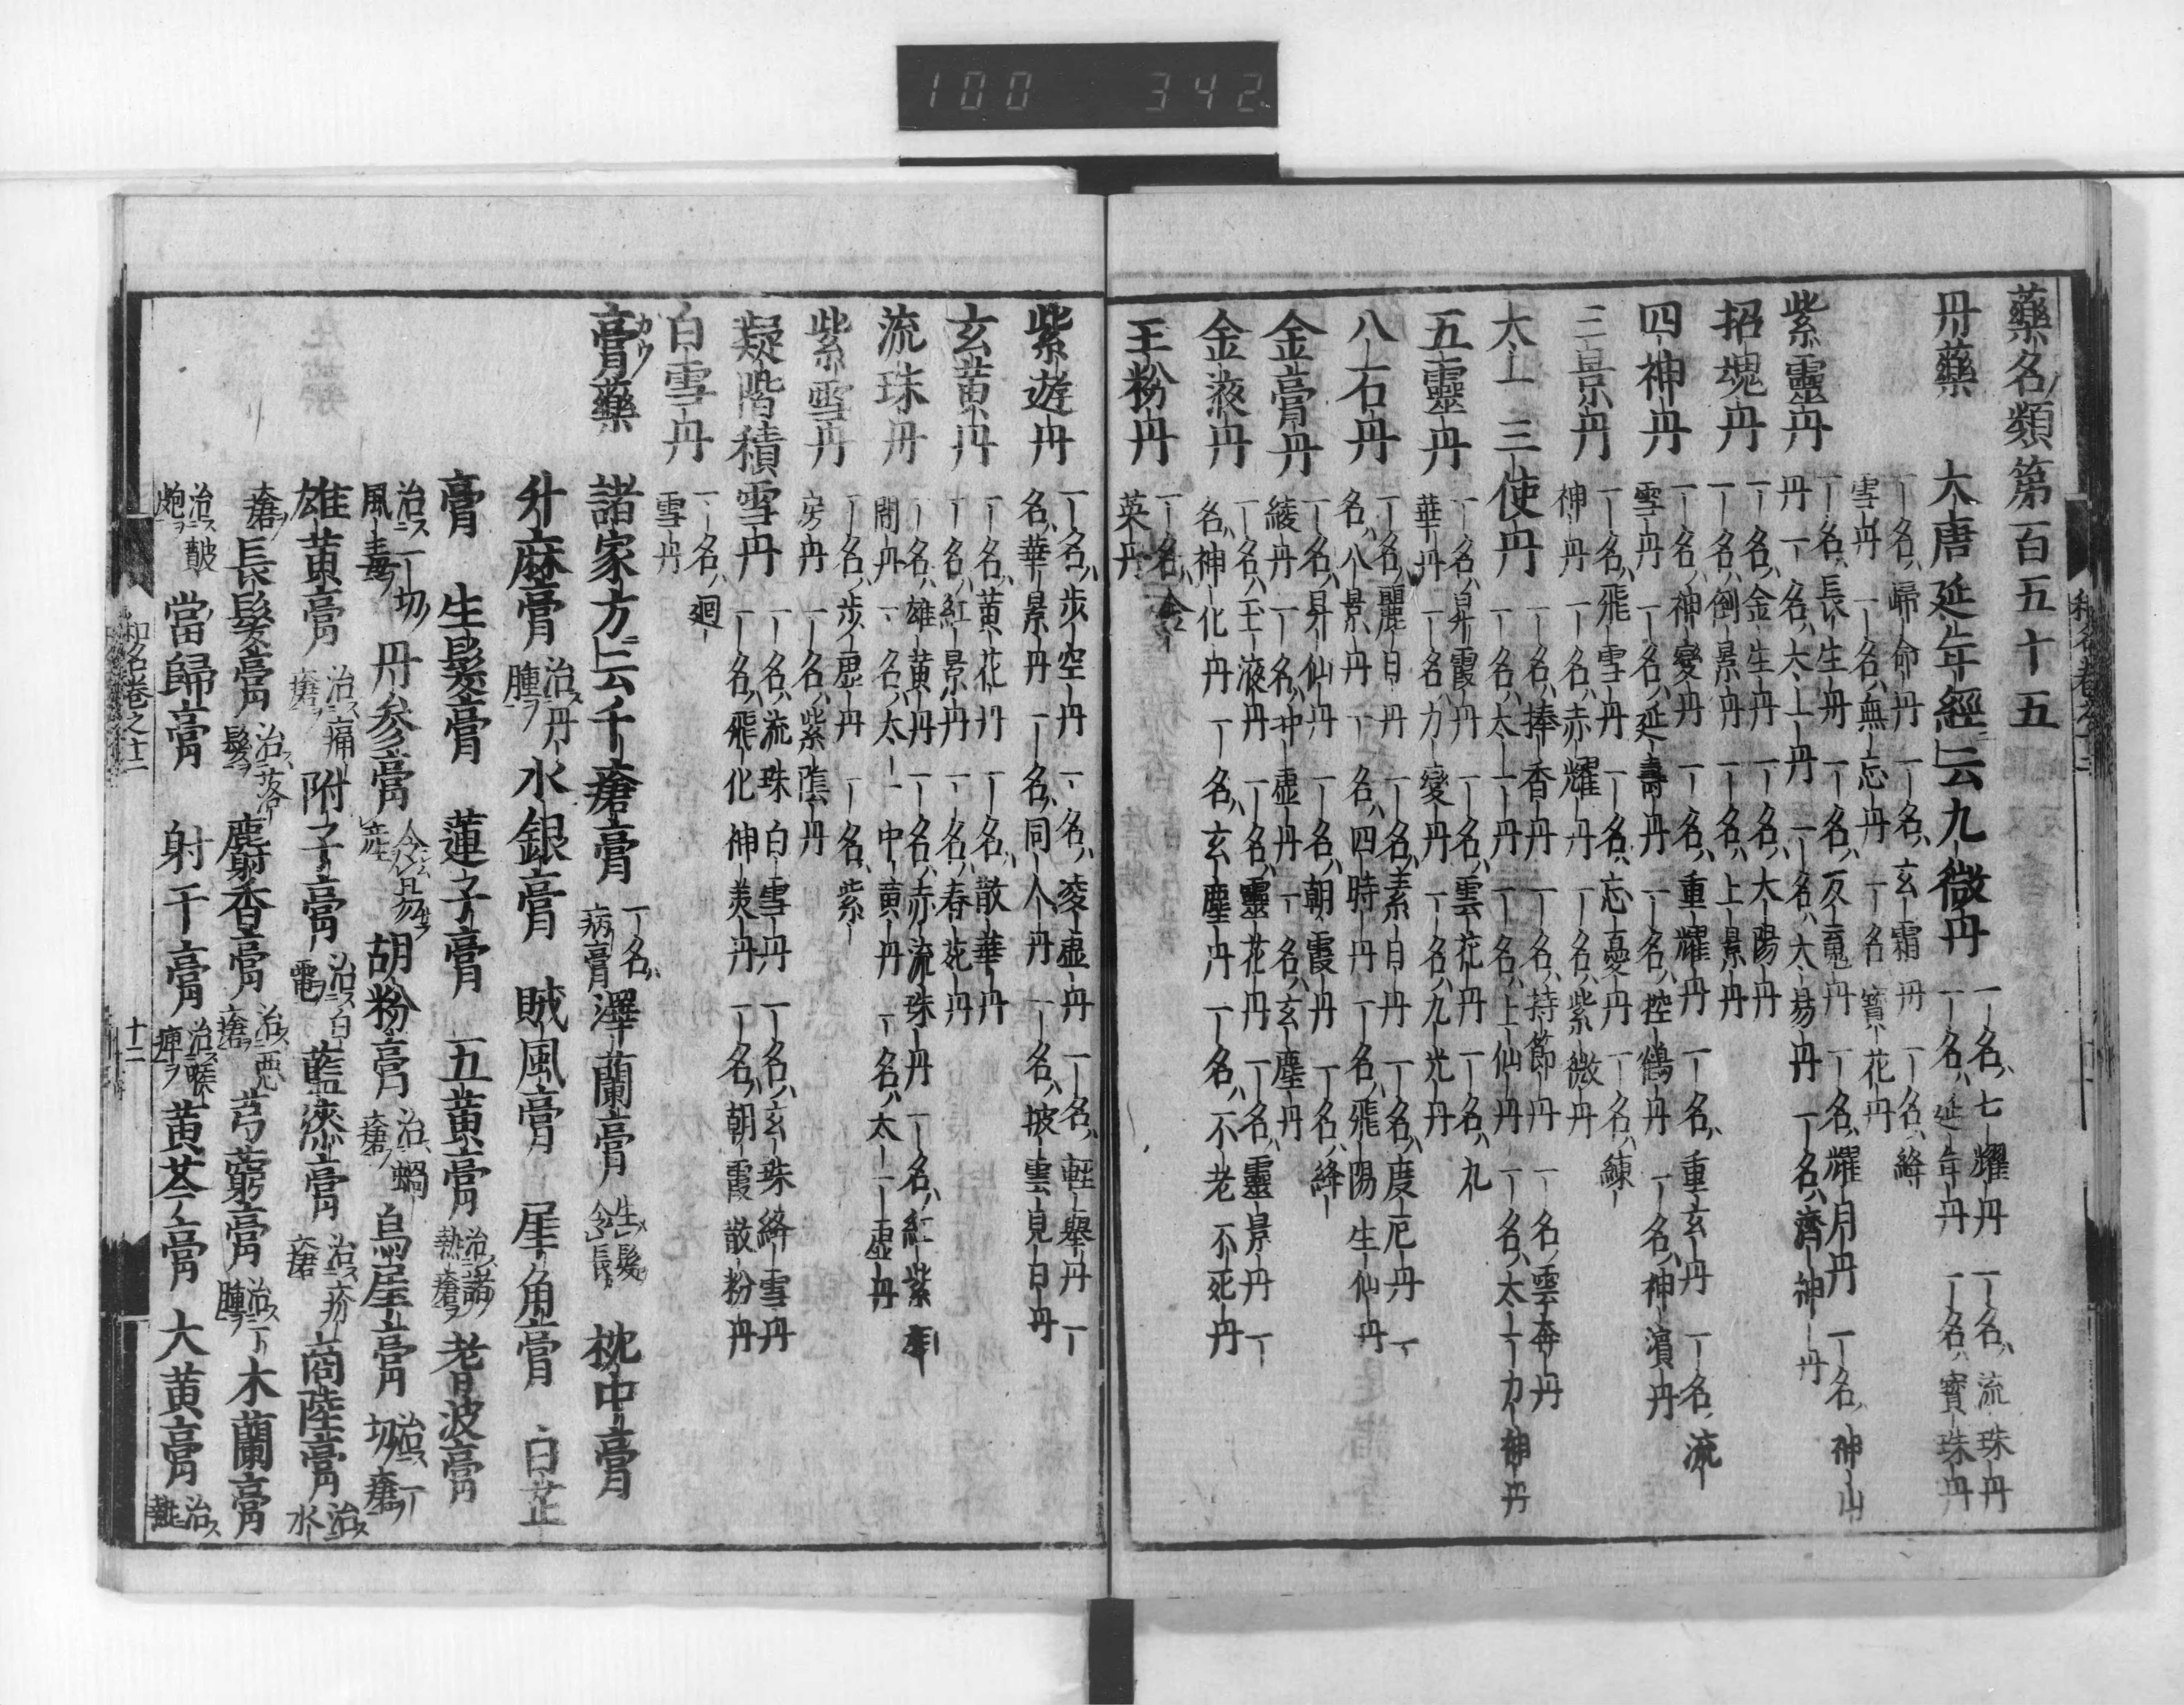 100 342
藥名類第百五十五
丹藥 大唐延年經云九微丹 一名七耀丹 一名流珠丹 一名延年丹 一名寳珠丹
一名歸命丹 一名玄霜丹 一名絳雪丹 一名無忘丹 一名寳花丹
紫靈丹 一名長生丹 一名反䰟丹 一名耀月丹 一名神山丹 一名太上丹 一名大易丹 一名濟神丹
招魂丹 一名金生丹 一名太陽丹 一名倒景丹 一名上景丹
四神丹 一名神變丹 一名重耀丹 一名重玄丹 一名流雪丹 一名延壽丹 一名控鶴丹 一名神濱丹
三景丹 一名飛雪丹 一名忘憂丹 一名練神丹 一名赤耀丹 一名紫微丹
太一三使丹 一名捧香丹 一名持節丹 一名雲奔丹 一名太一丹 一名上仙丹 一名太一力神丹
五靈丹 一名昇霞丹 一名雲花丹 一名九華丹 一名力變丹 一名九光丹
八石丹 一名麗日丹 一名素日丹 一名度厄丹 一名八景丹 一名四時丹 一名飛陽生仙丹
金膏丹 一名昇仙丹 一名朝霞丹 一名絳綾丹 一名中虚丹 一名玄塵丹
金液丹 一名玉液丹 一名靈花丹 一名靈景丹 一名神化丹 一名玄塵丹 一名不老不死丹
玉粉丹 一名金英丹
和名卷之十二
紫遊丹 一名步空丹 一名凌虚丹 一名軽舉丹 一名華景丹 一名同人丹 一名披雲見日丹
玄黄丹 一名黄花丹 一名散華丹 一名紅景丹 一名春花丹
流珠丹 一名雄黄丹 一名赤流珠丹 一名紅紫丹 一名太一中黄丹 一名太一虚丹
紫雪丹 一名步虚丹 一名紫房丹 一名紫陰丹
凝階積雪丹 一名流珠白雪丹 一名玄珠絳雪丹 一名飛化神美丹 一名朝霞散粉丹
白雪丹 一名廻雪丹
膏藥 諸家方云千瘡膏 一名病膏 澤蘭膏 生髪令長 枕中膏
升麻膏 治丹腫 水銀膏 賊風膏 犀角膏 白芷
膏 生髮膏 蓮子膏 五黄膏 治諸熱瘡 耆波膏
治一切風毒 丹參膏 胡粉膏 治蝸瘡 烏犀膏 治一切瘡
雄黄膏 治痛瘡 附子膏 治白 藍漆膏 治疥瘡 商陸膏 治水
瘡 長髮膏 治落髮 麝香膏 治惡瘡 芎藭膏 治一腫 木蘭膏
治皷皰 當歸膏 射干膏 治喉痺 黄芩膏 大黄膏 治
和名卷之十二 十二